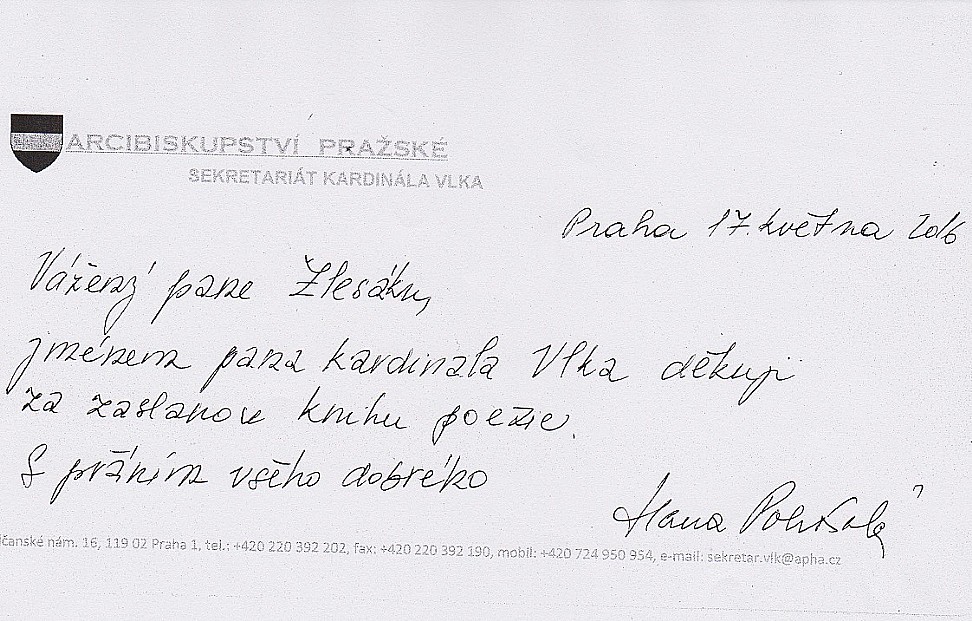 ARCIBISKUPSTVÍ PRAŽSKÉ
SEKRETARIÁT KARDINÁLA VLKA
Praha 17. května 2016
Vážený pane Žlesáku,
jménem pana kardinala Vlka děkuji
za zaslanou knihu poezie.
S přáním všeho dobrého
Hana
čanské nám. 16, 119 02 Praha 1, tel.: +420 220 392 202, fax: +420 220 392 190, mobil: +420 724 950 954, e-mail: sekretar.vlk@apha.cz